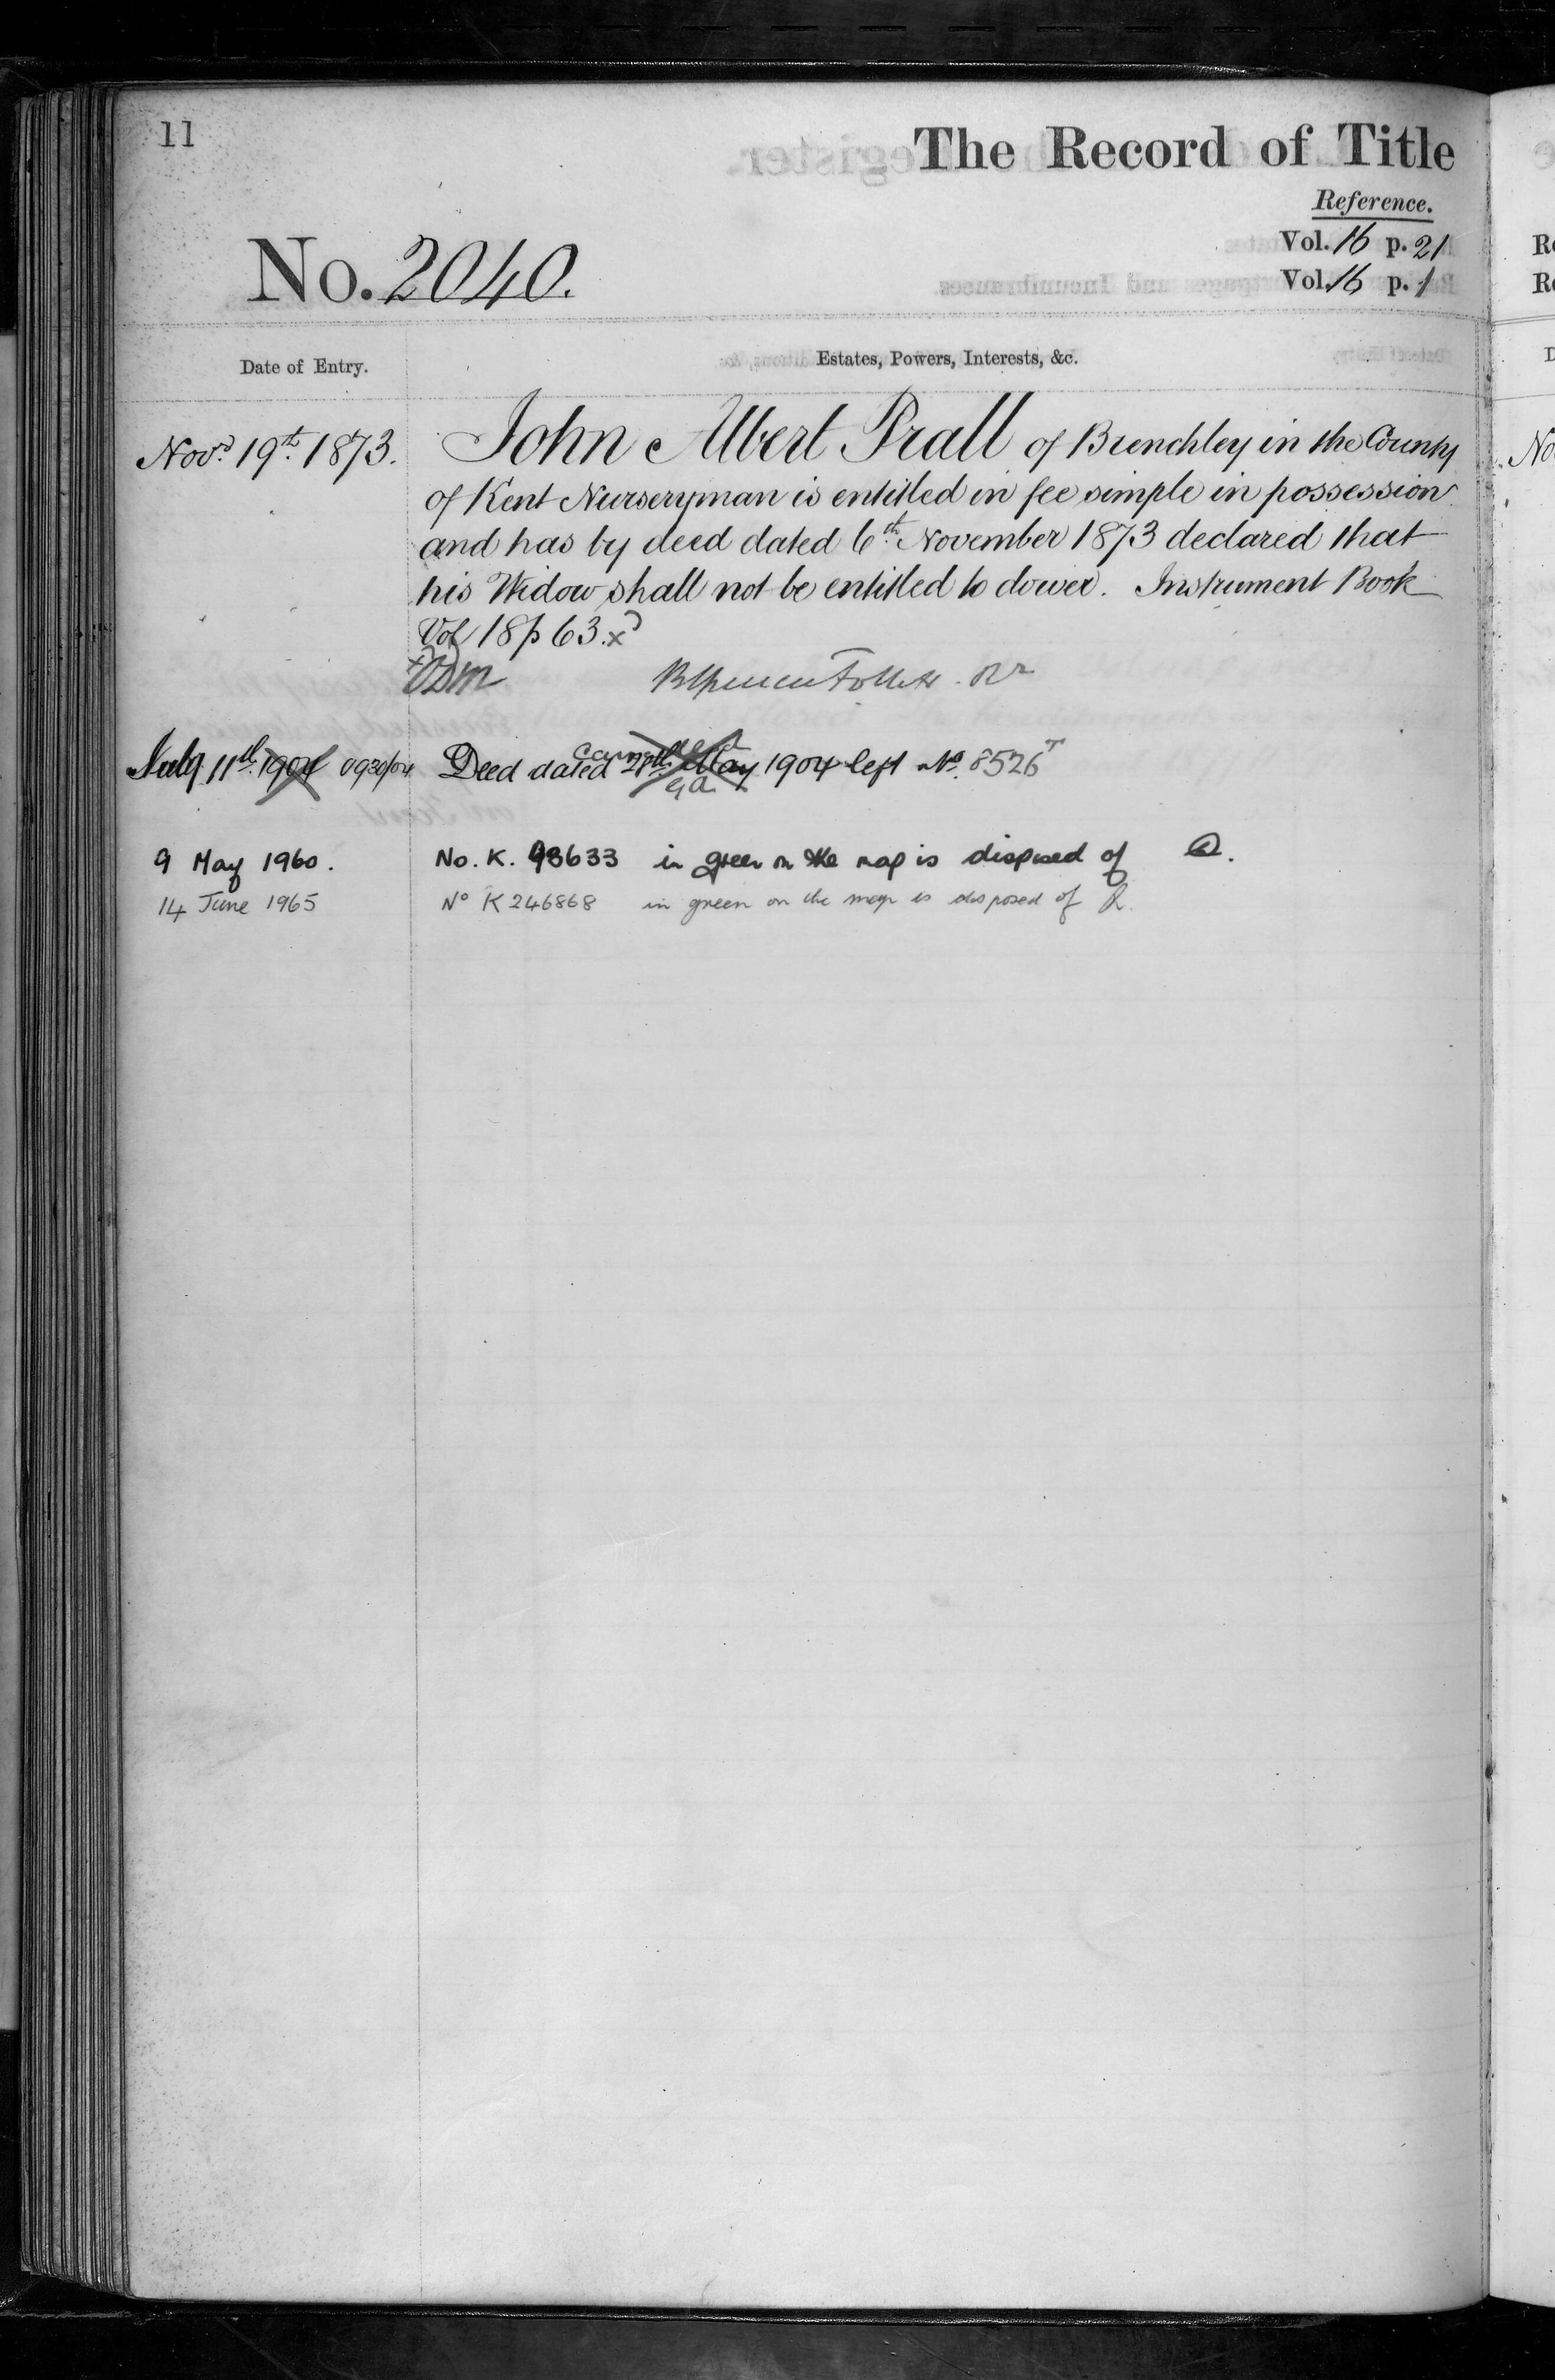 11
The Record of Title
Reference.
Vol. 16 p. 21
No. 2040.
Vol. 16 p. 1
Date of Entry.
Estates, Powers, Interests, &c.
Novr 19th 1873.
John Albert Prall of Brenchley in the County
of Kent Nurseryman is entitled in fee simple in possession
and has by deed dated 6th November 1873 declared that
his Widow shall not be entitled to dower. Instrument Book
Vol 18 p 63. x
July 11th 1904 0930/04 Deed dated May 1904 left No. 8526 T
9 May 1960. No. K. 98633 in green on the map is disposed of
14 June 1965 No K 246868 in green on the map is disposed of R.